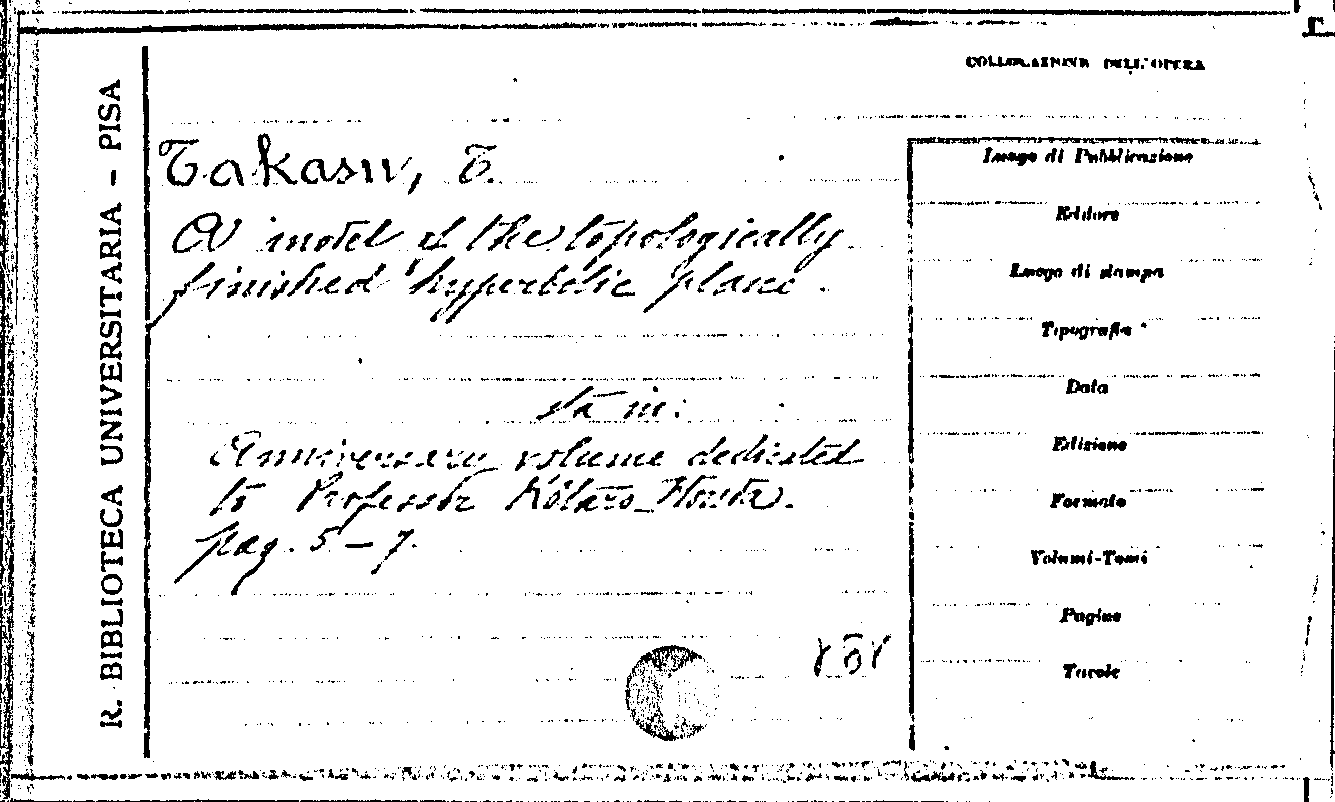 R. BIBLIOTECA UNIVERSITARIA - PISA
COLLOCAZIONE DELL'OPERA
Takasu, T.
A model of the topologically
finished hyperbolic plane.
sta in:
Anniversary volume dedicated
to Professor Kôtaro Honda.
pag. 5-7.
Luogo di Pubblicazione
Editore
Luogo di stampa
Tipografia
Data
Edizione
Formato
Volumi-Tomi
Pagine
Tavole